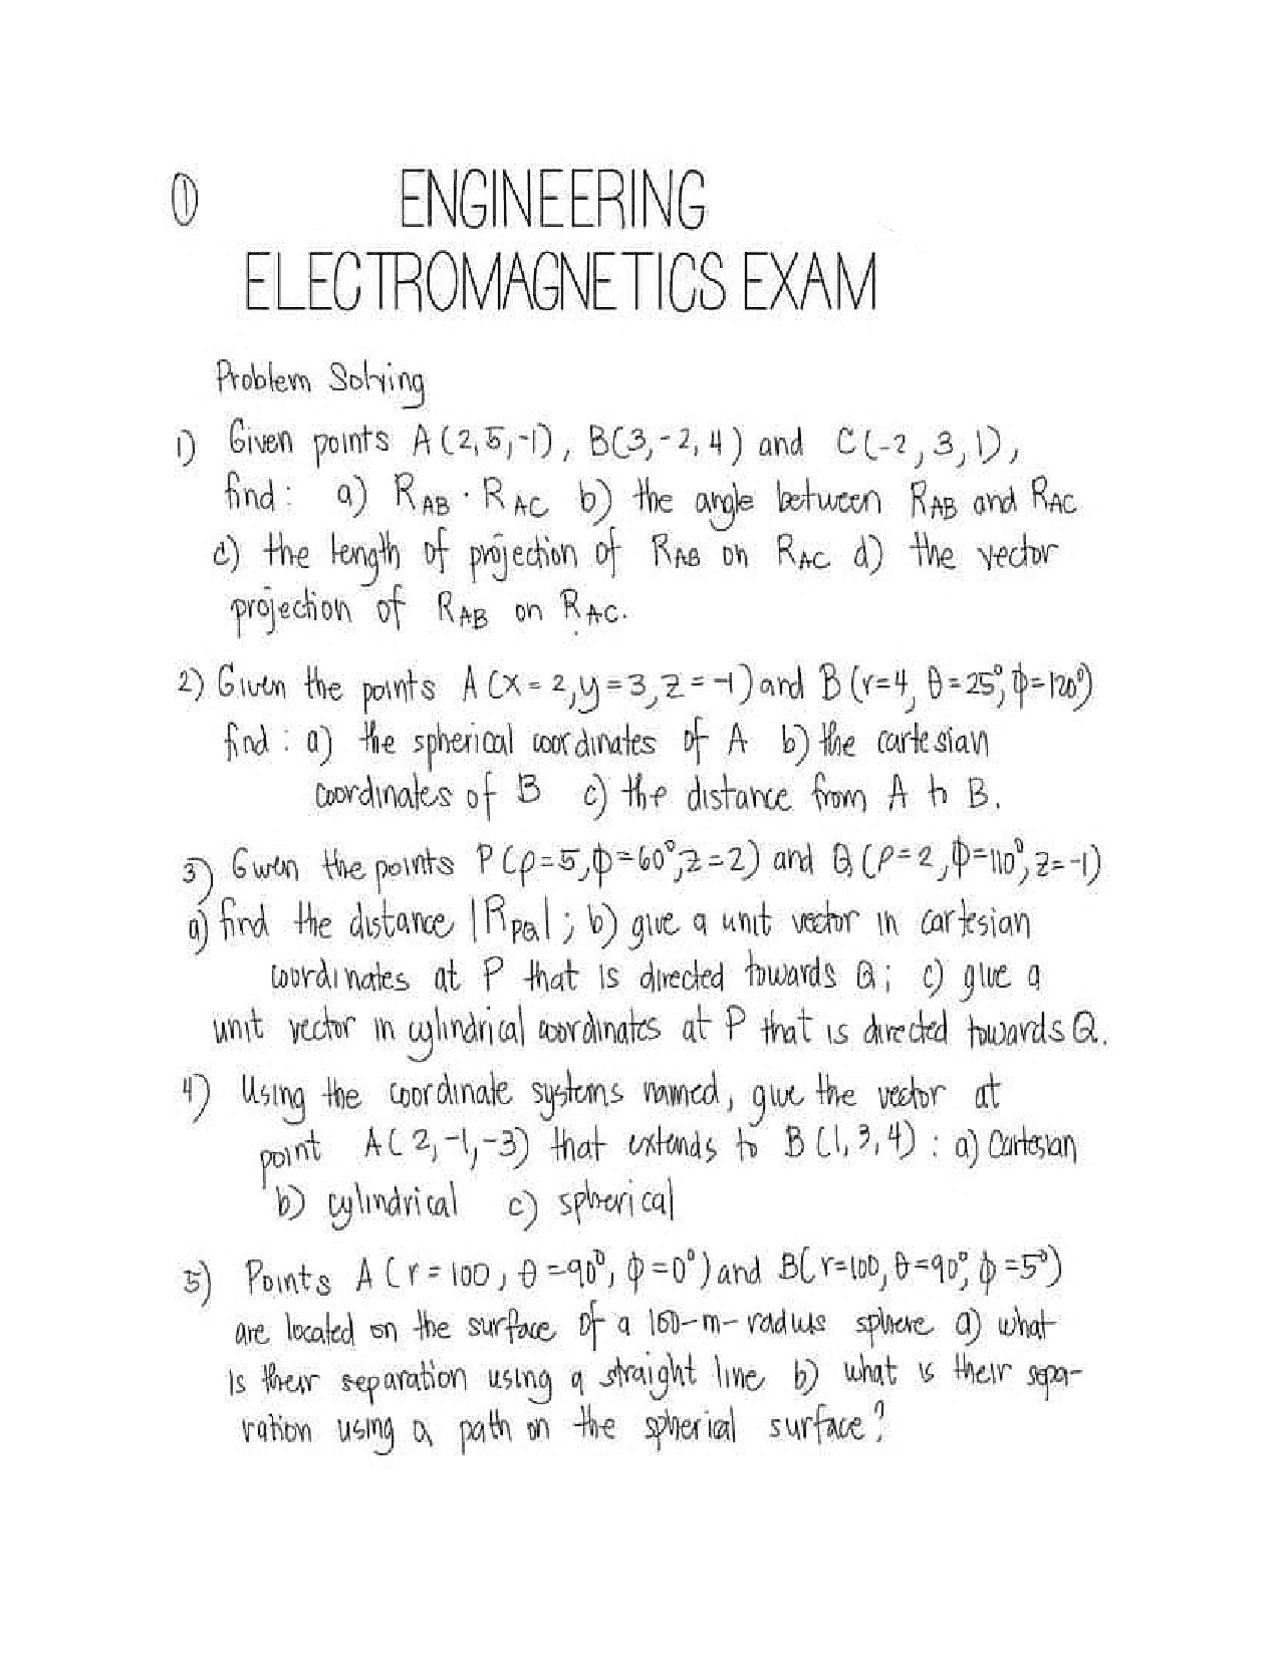 ①
ENGINEERING
ELECTROMAGNETICS EXAM
Problem Solving
1) Given points A(2,5,-1), B(3,-2,4) and C(-2,3,1),
find: a) R_AB · R_AC b) the angle between R_AB and R_AC
c) the length of projection of R_AB on R_AC d) the vector
projection of R_AB on R_AC.
2) Given the points A(x=2,y=3,z=-1) and B(r=4, θ=25°, ϕ=120°)
find: a) the spherical coordinates of A b) the cartesian
coordinates of B c) the distance from A to B.
3) Given the points P(ρ=5,ϕ=60°,z=2) and Q(ρ=2,ϕ=110°,z=-1)
a) find the distance |R_PQ|; b) give a unit vector in cartesian
coordinates at P that is directed towards Q; c) give a
unit vector in cylindrical coordinates at P that is directed towards Q.
4) Using the coordinate systems named, give the vector at
point A(2,-1,-3) that extends to B(1,3,4): a) Cartesian
b) cylindrical c) spherical
5) Points A(r=100, θ=90°, ϕ=0°) and B(r=100, θ=90°, ϕ=5°)
are located on the surface of a 100-m-radius sphere a) what
is their separation using a straight line b) what is their sepa-
ration using a path on the spherical surface?